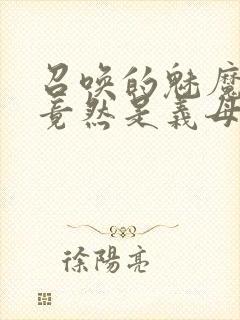 召唤的魅魔
竟然是义母
徐陽亮